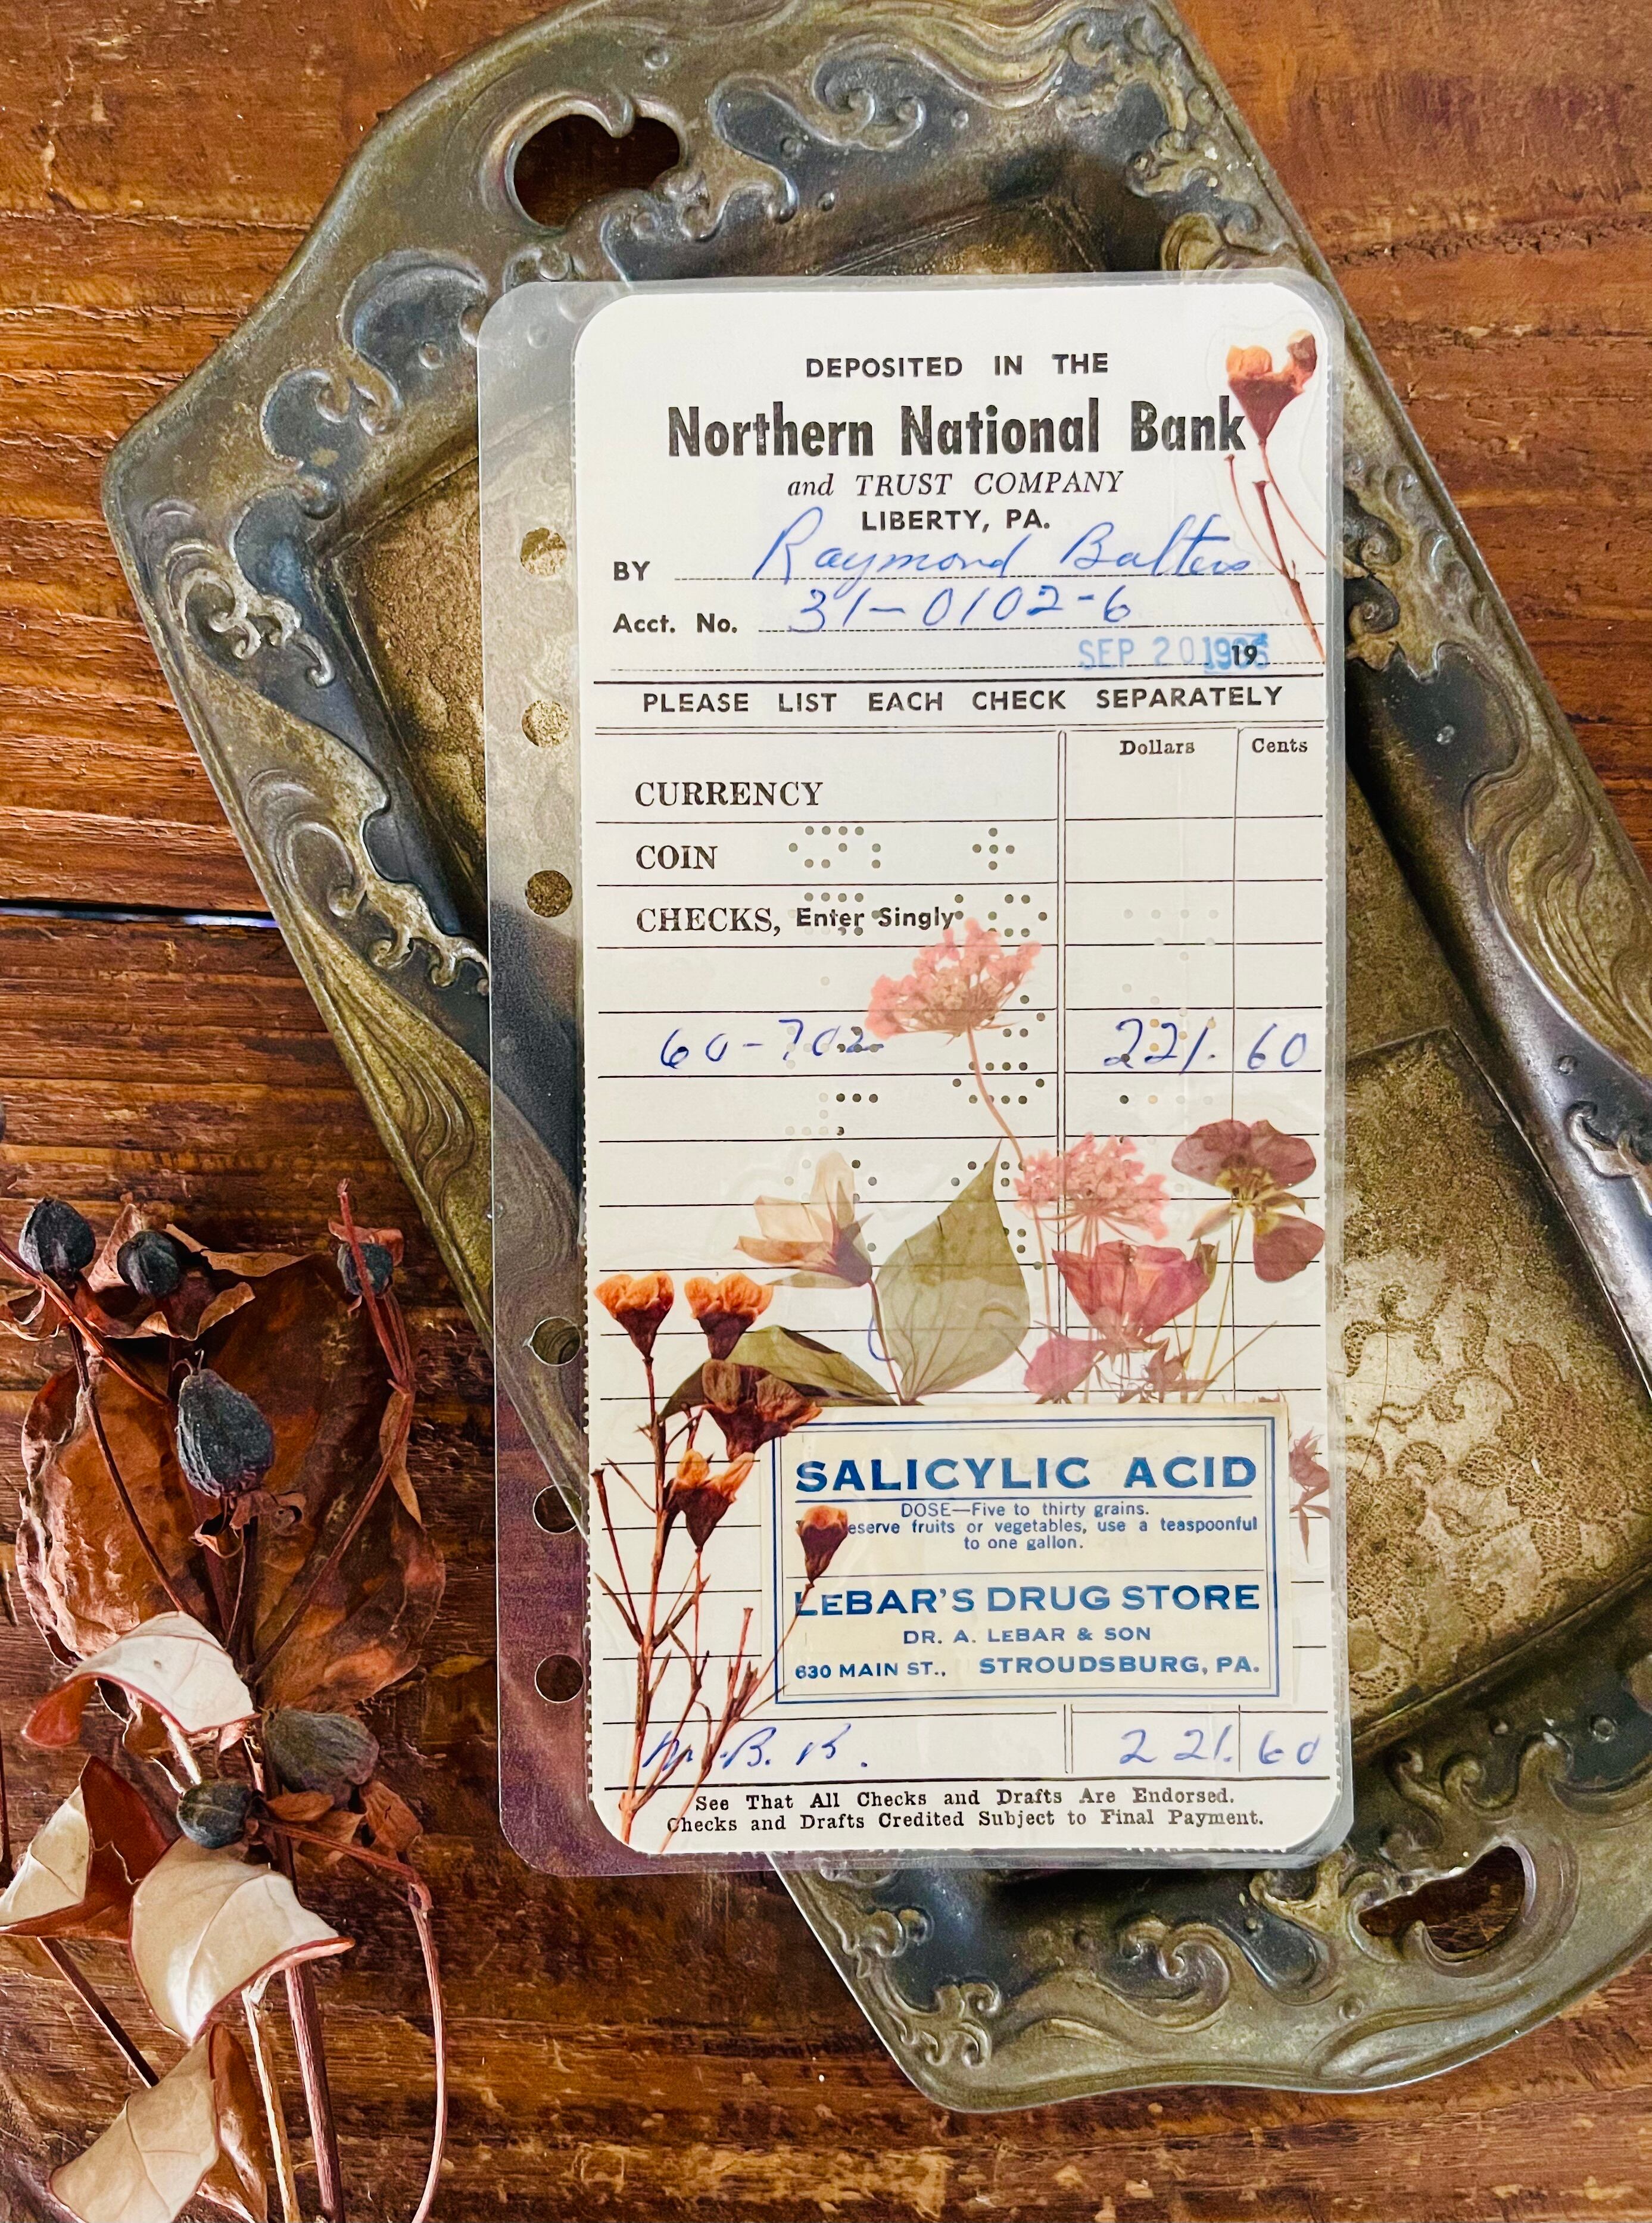 DEPOSITED IN THE
Northern National Bank
and TRUST COMPANY
LIBERTY, PA.
BY Raymond Balters
Acct. No. 31-0102-6
SEP 20 19
PLEASE LIST EACH CHECK SEPARATELY
Dollars Cents
CURRENCY
COIN
CHECKS, Enter Singly
60-702 221. 60
SALICYLIC ACID
DOSE—Five to thirty grains.
eserve fruits or vegetables, use a teaspoonful
to one gallon.
LEBAR'S DRUG STORE
DR. A. LEBAR & SON
630 MAIN ST., STROUDSBURG, PA.
M. B. K. 221. 60
See That All Checks and Drafts Are Endorsed.
Checks and Drafts Credited Subject to Final Payment.